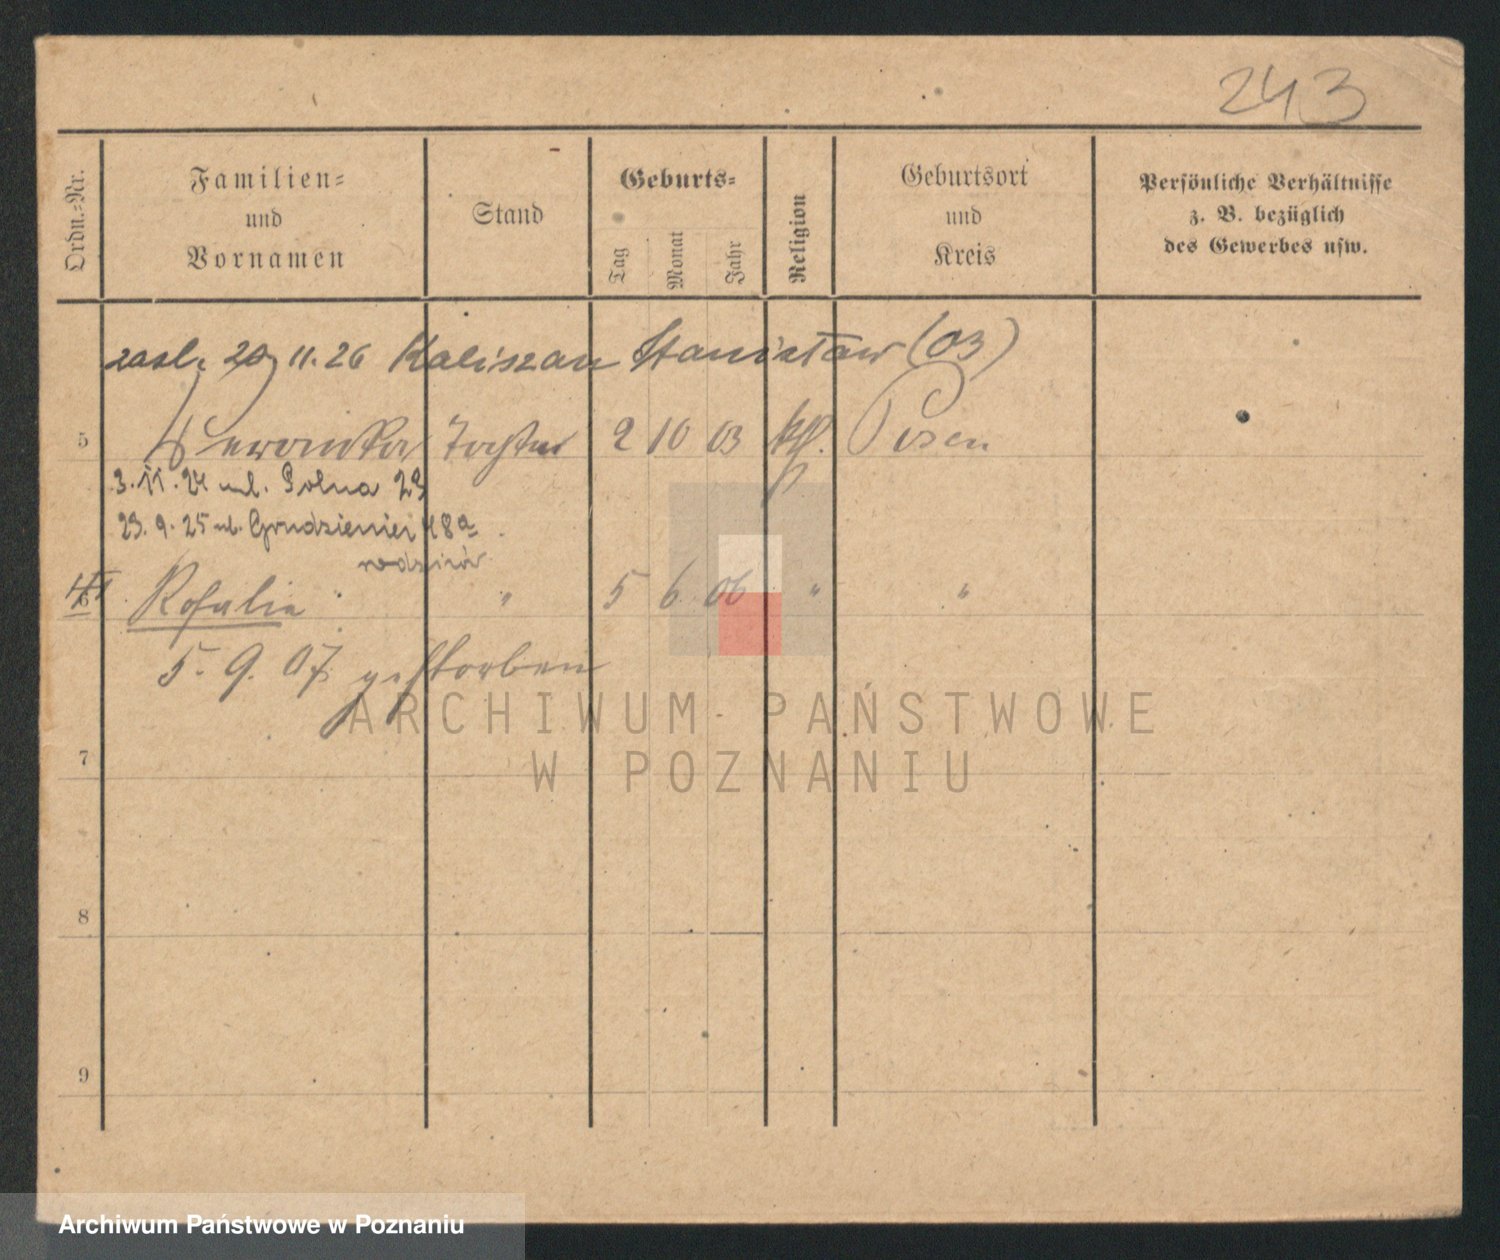 243
Ordn.=Nr.
Familien=
und
Vornamen
Stand
Geburts=
Tag
Monat
Jahr
Religion
Geburtsort
und
Kreis
Persönliche Verhältnisse
z. B. bezüglich
des Gewerbes usw.
zasl. 20 11. 26 Kaliszan Stanisław (03)
5 Weronika Tochter 2 10 03 kth. Posen
3. 11. 24 ul. Polna 23
23. 9. 25 ul. Grudzieniec 48a
rodziców
6 Rosalie " 5 6 06 " "
5. 9. 07 gestorben
7
8
9
ARCHIWUM PAŃSTWOWE
W POZNANIU
Archiwum Państwowe w Poznaniu